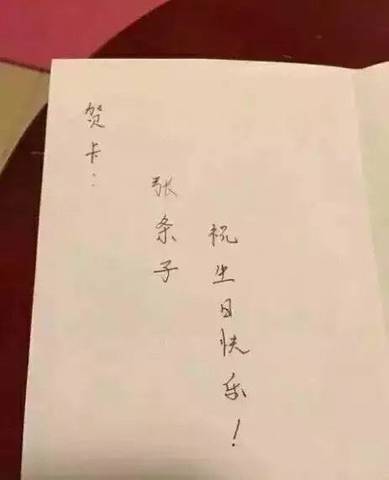 贺卡：
张条子
祝生日快乐！